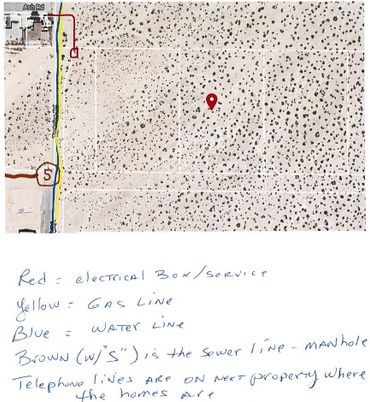 Ash Rd
S
Red = electrical Box/service
Yellow = GAS LINE
Blue = WATER LINE
BROWN (w/"S") is the sewer line - MANhole
Telephone lines ARE ON NEXT property where
the homes are